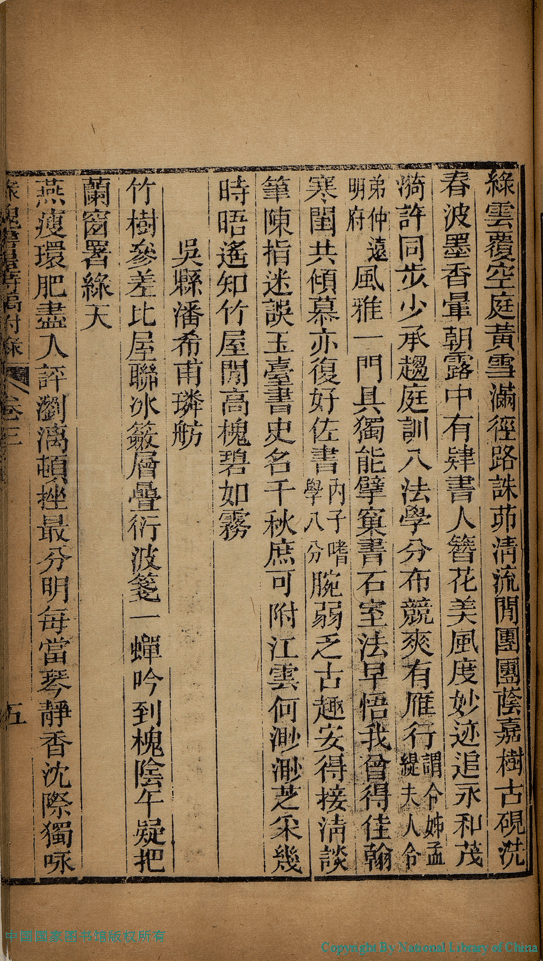 綠雲覆空庭黃雪滿徑路誅茆淸流閒團團蔭嘉樹古硯洗
春波墨香暈朝露中有肄書人簪花美風度妙迹追永和茂
漪許同步少承趨庭訓八法學分布競爽有雁行謂令姊孟緹夫人令
弟仲遠明府風雅一門具獨能擘窠書石室法早悟我曾得佳翰
寒閨共傾慕亦復好佐書內子嗜學八分腕弱乏古趣安得接淸談
筆陳指迷誤玉臺書史名千秋庶可附江雲何渺渺芝采幾
時晤遙知竹屋閒高槐碧如霧
吳縣潘希甫璘舫
竹樹參差比屋聯冰簌層疊衍波箋一蟬吟到槐陰午疑把
蘭窗署綠天
燕瘦環肥盡入評瀏漓頓挫最分明每當琴靜香沈際獨咏
卷三
五
中國國家图书馆版权所有
Copyright By National Library of China